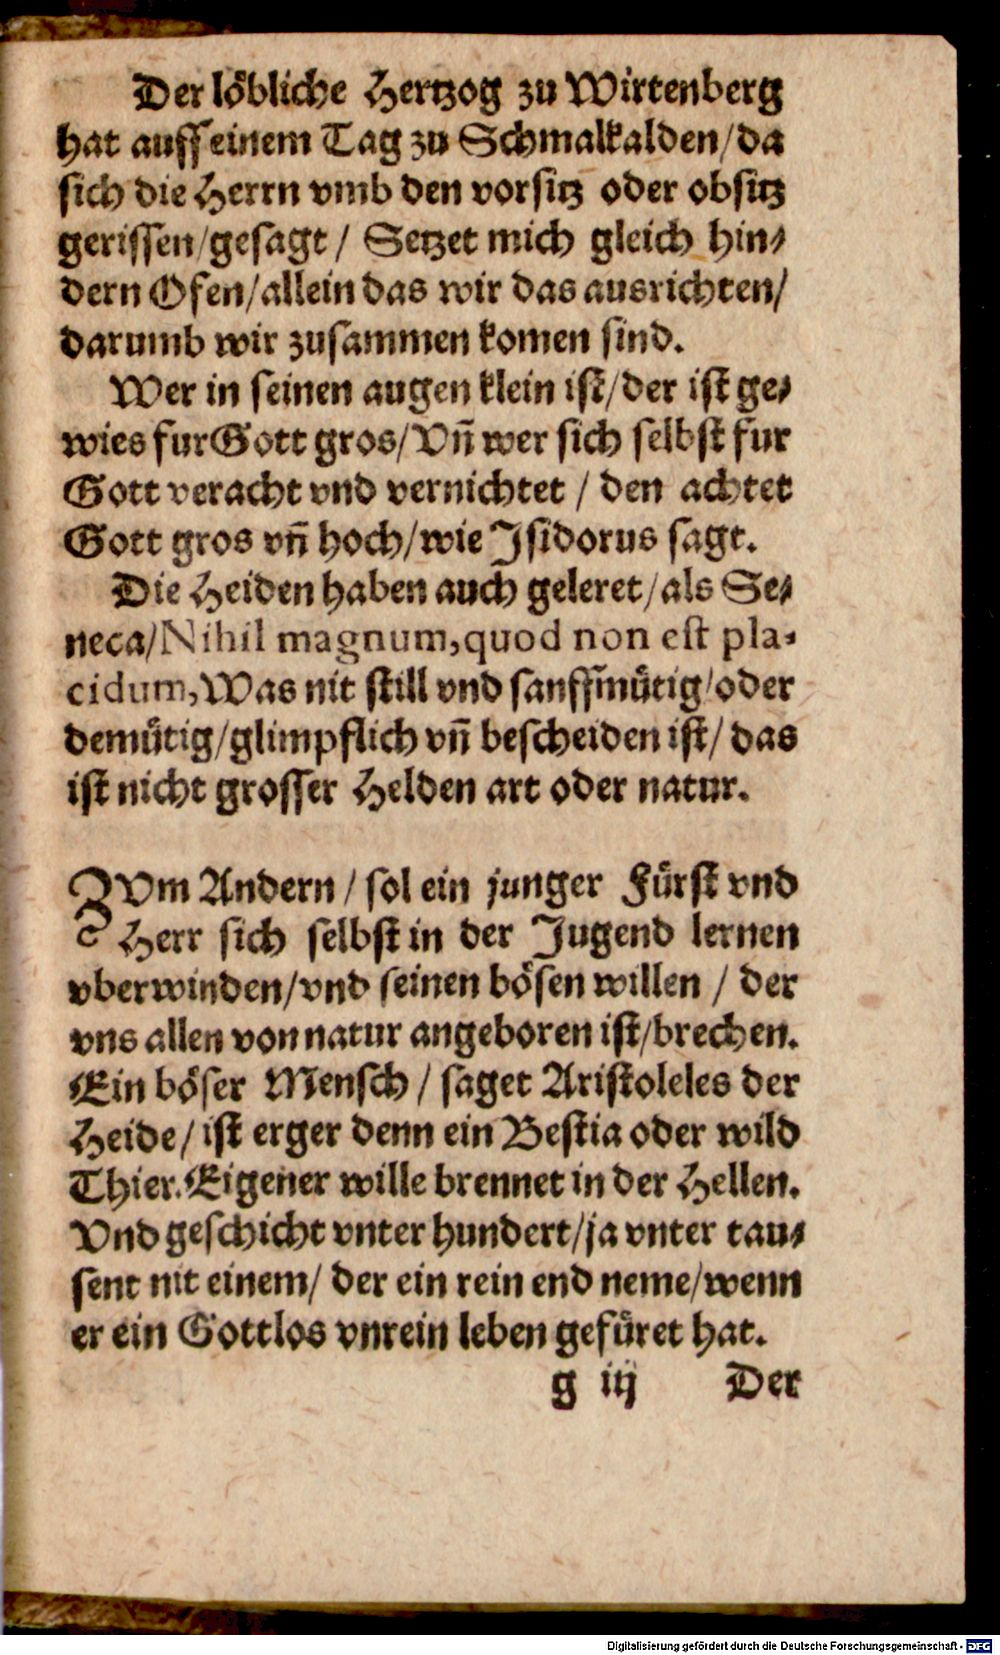 Der löbliche Hertzog zu Wirtenberg
hat auff einem Tag zu Schmalkalden/ da
sich die Herrn vmb den vorsitz oder obsitz
gerissen/ gesagt / Setzet mich gleich hin⸗
dern Ofen/ allein das wir das ausrichten/
darumb wir zusammen komen sind.
Wer in seinen augen klein ist/ der ist ge⸗
wies fur Gott gros/ Vñ wer sich selbst fur
Gott veracht vnd vernichtet / den achtet
Gott gros vñ hoch/ wie Isidorus sagt.
Die Heiden haben auch geleret/ als Se⸗
neca/ Nihil magnum, quod non est pla-
cidum, Was nit still vnd sanfftmütig/ oder
demütig/ glimpflich vñ bescheiden ist/ das
ist nicht grosser Helden art oder natur.
ZVm Andern / sol ein junger Fürst vnd
Herr sich selbst in der Jugend lernen
vberwinden/ vnd seinen bösen willen / der
vns allen von natur angeboren ist/ brechen.
Ein böser Mensch / saget Aristoleles der
Heide/ ist erger denn ein Bestia oder wild
Thier. Eigener wille brennet in der Hellen.
Vnd geschicht vnter hundert/ ja vnter tau⸗
sent nit einem/ der ein rein end neme/ wenn
er ein Gottlos vnrein leben gefüret hat.
g iij Der
Digitalisierung gefördert durch die Deutsche Forschungsgemeinschaft - DFG